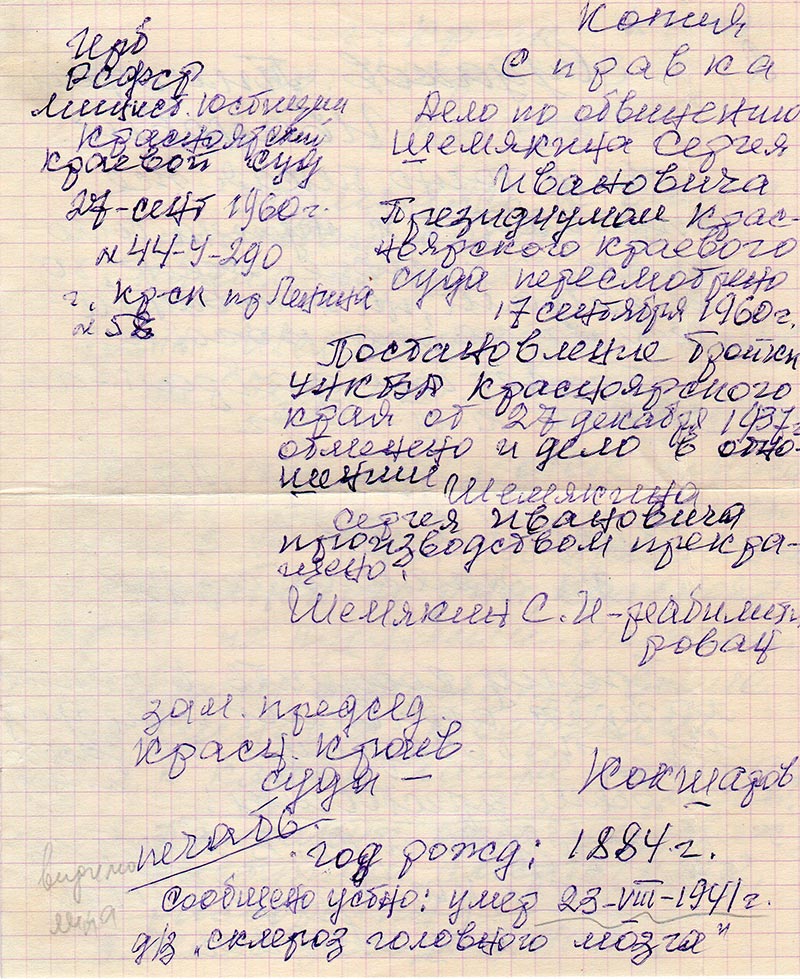 Копия
Герб
РСФСР
Минист. юстиции
Красноярский
краевой суд
27-сент 1960г.
№44-У-290
г. Кр-ск пр Ленина
№ 58
Справка
Дело по обвинению
Шемякина Сергея
Ивановича
Президиумом Крас-
ноярского краевого
суда пересмотрено
17 сентября 1960г.
Постановление тройки
УНКВД Красноярского
края от 27 декабря 1937г
отменено и дело в отно-
шении Шемякина
Сергея Ивановича
производством прекра-
щено.
Шемякин С. И-реабилити
рован
зам. председ.
Красн. краев.
суда –
Кокшаров
печать.
год рожд: 1884 г.
Сообщено устно: умер 23-VIII-1941 г.
д/з „склероз головного мозга"
видимо